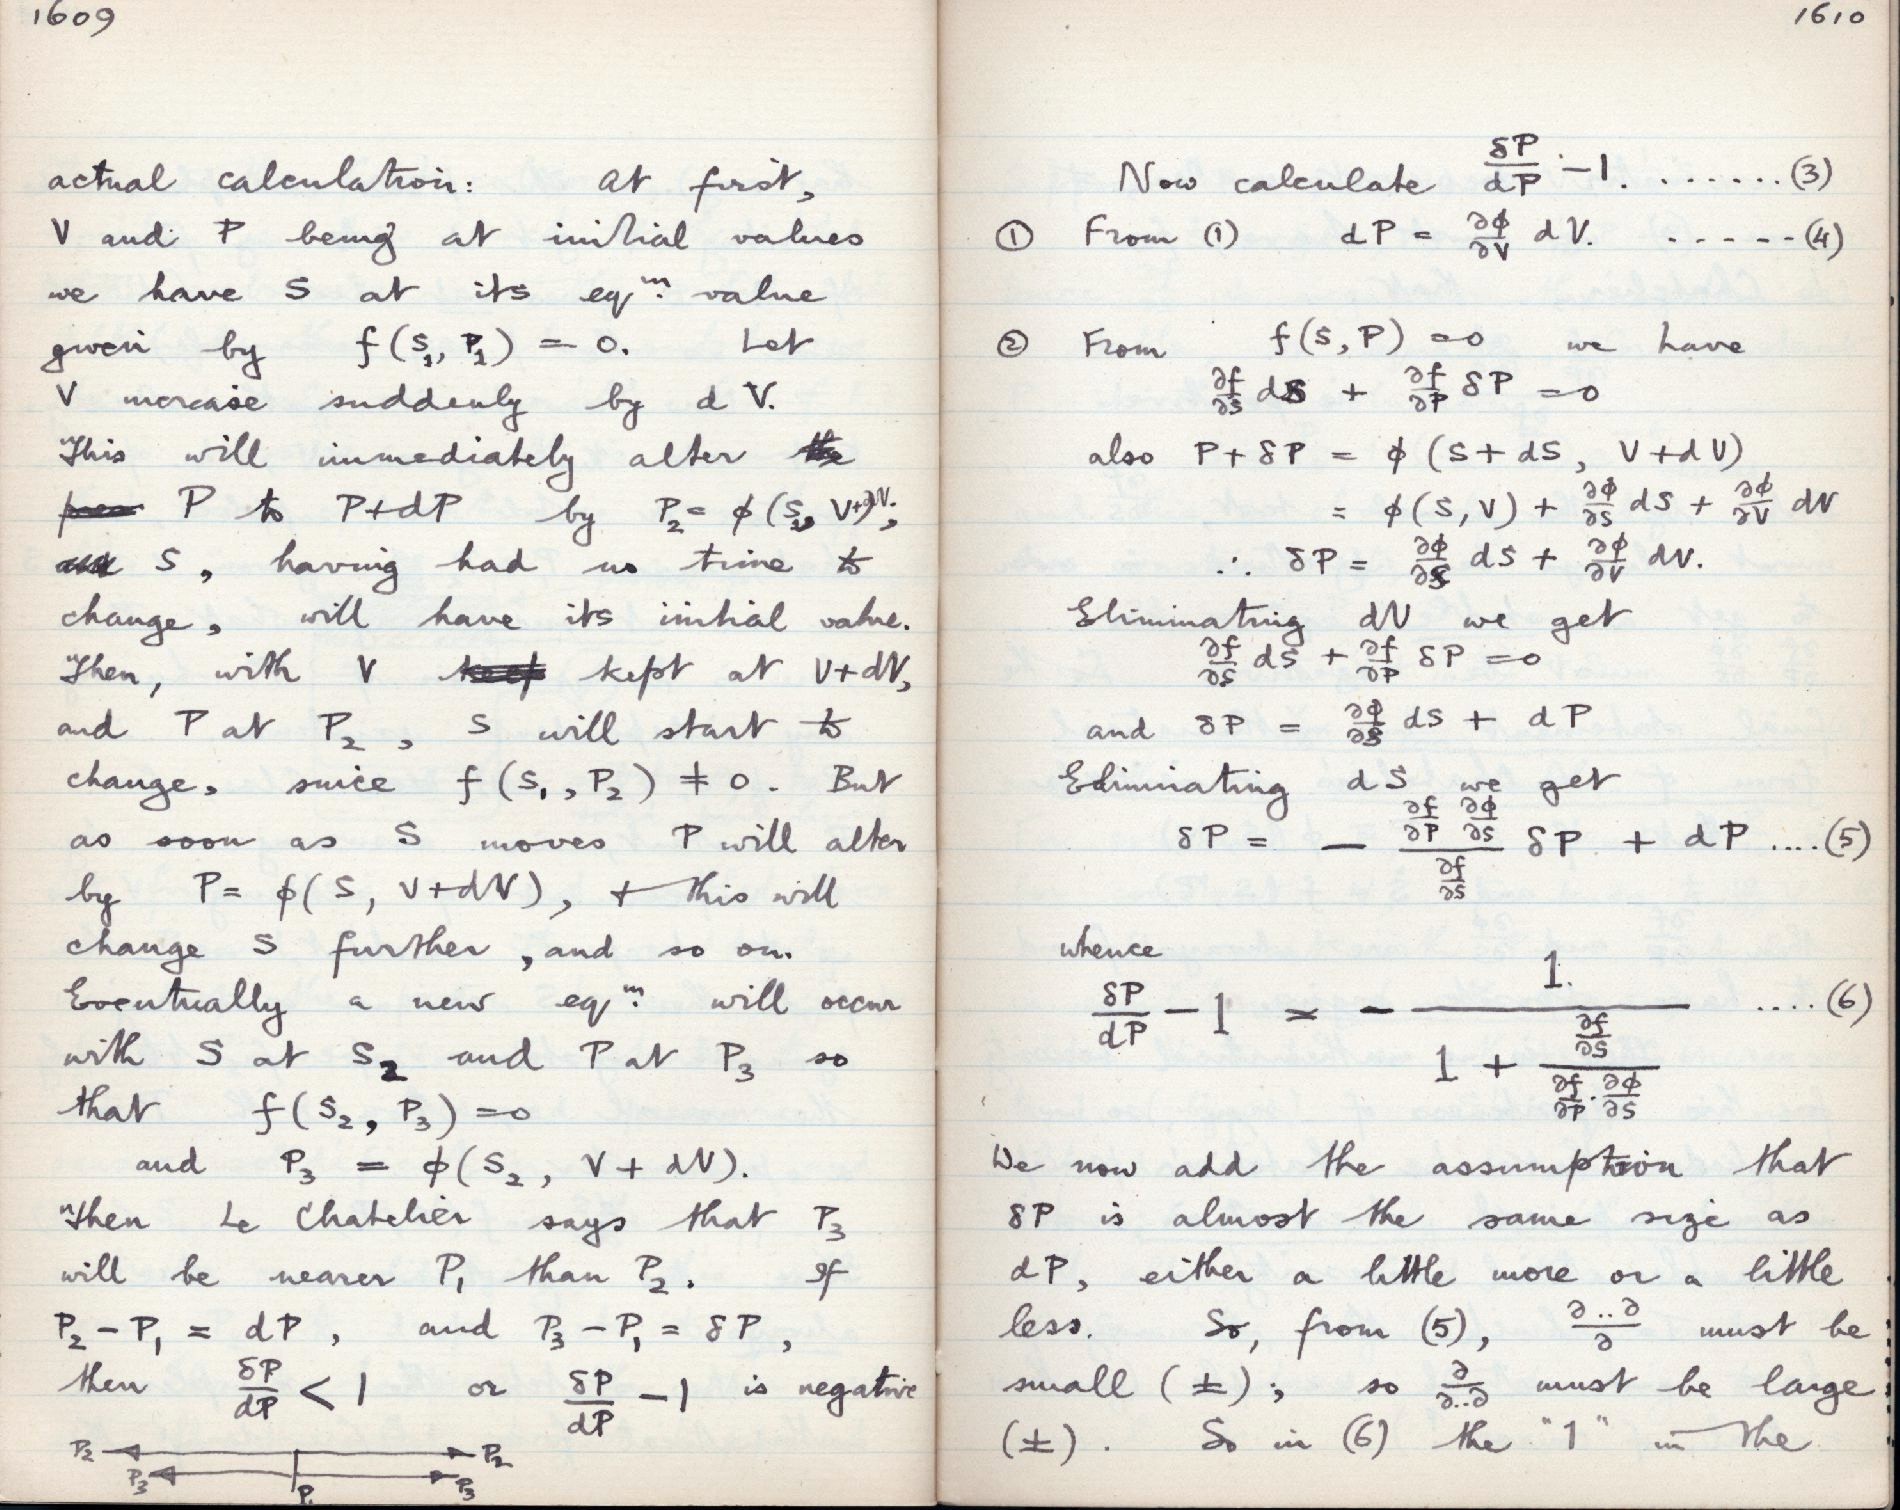 1609
actual calculation: At first,
V and P being at initial values
we have S at its eq.ᵐ value
given by f(S₁, P₁) = 0. Let
V increase suddenly by dV.
This will immediately alter the
P to P+dP by P₂ = ϕ(S₁, V+dV),
S, having had no time to
change, will have its initial value.
Then, with V keep kept at V+dV,
and P at P₂, S will start to
change, since f(S₁, P₂) ≠ 0. But
as soon as S moves P will alter
by P = ϕ(S, V+dV), + this will
change S further, and so on.
Eventually a new eq.ᵐ will occur
with S at S₂ and P at P₃ so
that f(S₂, P₃) = 0
and P₃ = ϕ(S₂, V+dV).
Then Le Chatelier says that P₃
will be nearer P₁ than P₂. If
P₂ − P₁ = dP, and P₃ − P₁ = δP,
then δP/dP < 1 or δP/dP − 1 is negative
P₂ P₂
P₃ P₁ P₃
1610
Now calculate δP/dP − 1. ...... (3)
① From (1) dP = ∂ϕ/∂V dV. ----- (4)
② From f(S, P) = 0 we have
∂f/∂S dS + ∂f/∂P δP = 0
also P + δP = ϕ(S+dS, V+dV)
= ϕ(S, V) + ∂ϕ/∂S dS + ∂ϕ/∂V dV
∴ δP = ∂ϕ/∂S dS + ∂ϕ/∂V dV.
Eliminating dV we get
∂f/∂S dS + ∂f/∂P δP = 0
and δP = ∂ϕ/∂S dS + dP
Eliminating dS we get
δP = − (∂f/∂P ∂ϕ/∂S)/(∂f/∂S) δP + dP ....(5)
whence
δP/dP − 1 = − 1/(1 + (∂f/∂S)/(∂f/∂P · ∂ϕ/∂S)) ....(6)
We now add the assumption that
δP is almost the same size as
dP, either a little more or a little
less. So, from (5), ∂..∂/∂ must be
small (±); so ∂/∂..∂ must be large
(±). So in (6) the "1" in the